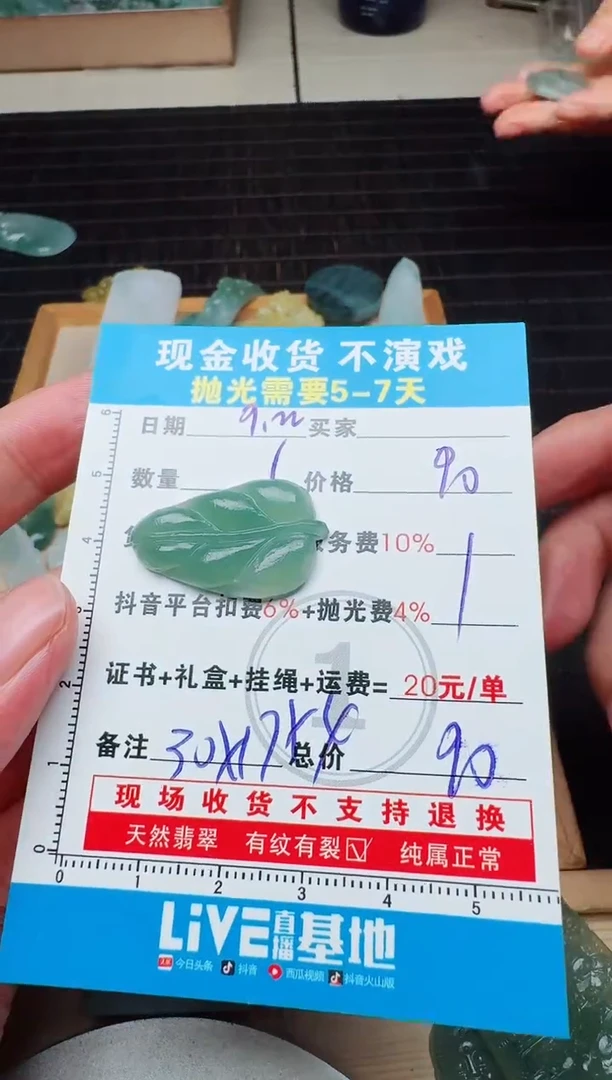 现金收货 不演戏
抛光需要5-7天
日期 9.22 买家
数量 1 价格 90
务费10%
抖音平台扣费6%+抛光费4%
证书+礼盒+挂绳+运费= 20元/单
备注 30×17×4 总价 90
现场收货不支持退换
天然翡翠 有纹有裂☑ 纯属正常
LiVE直播基地
今日头条 抖音 西瓜视频 抖音火山版